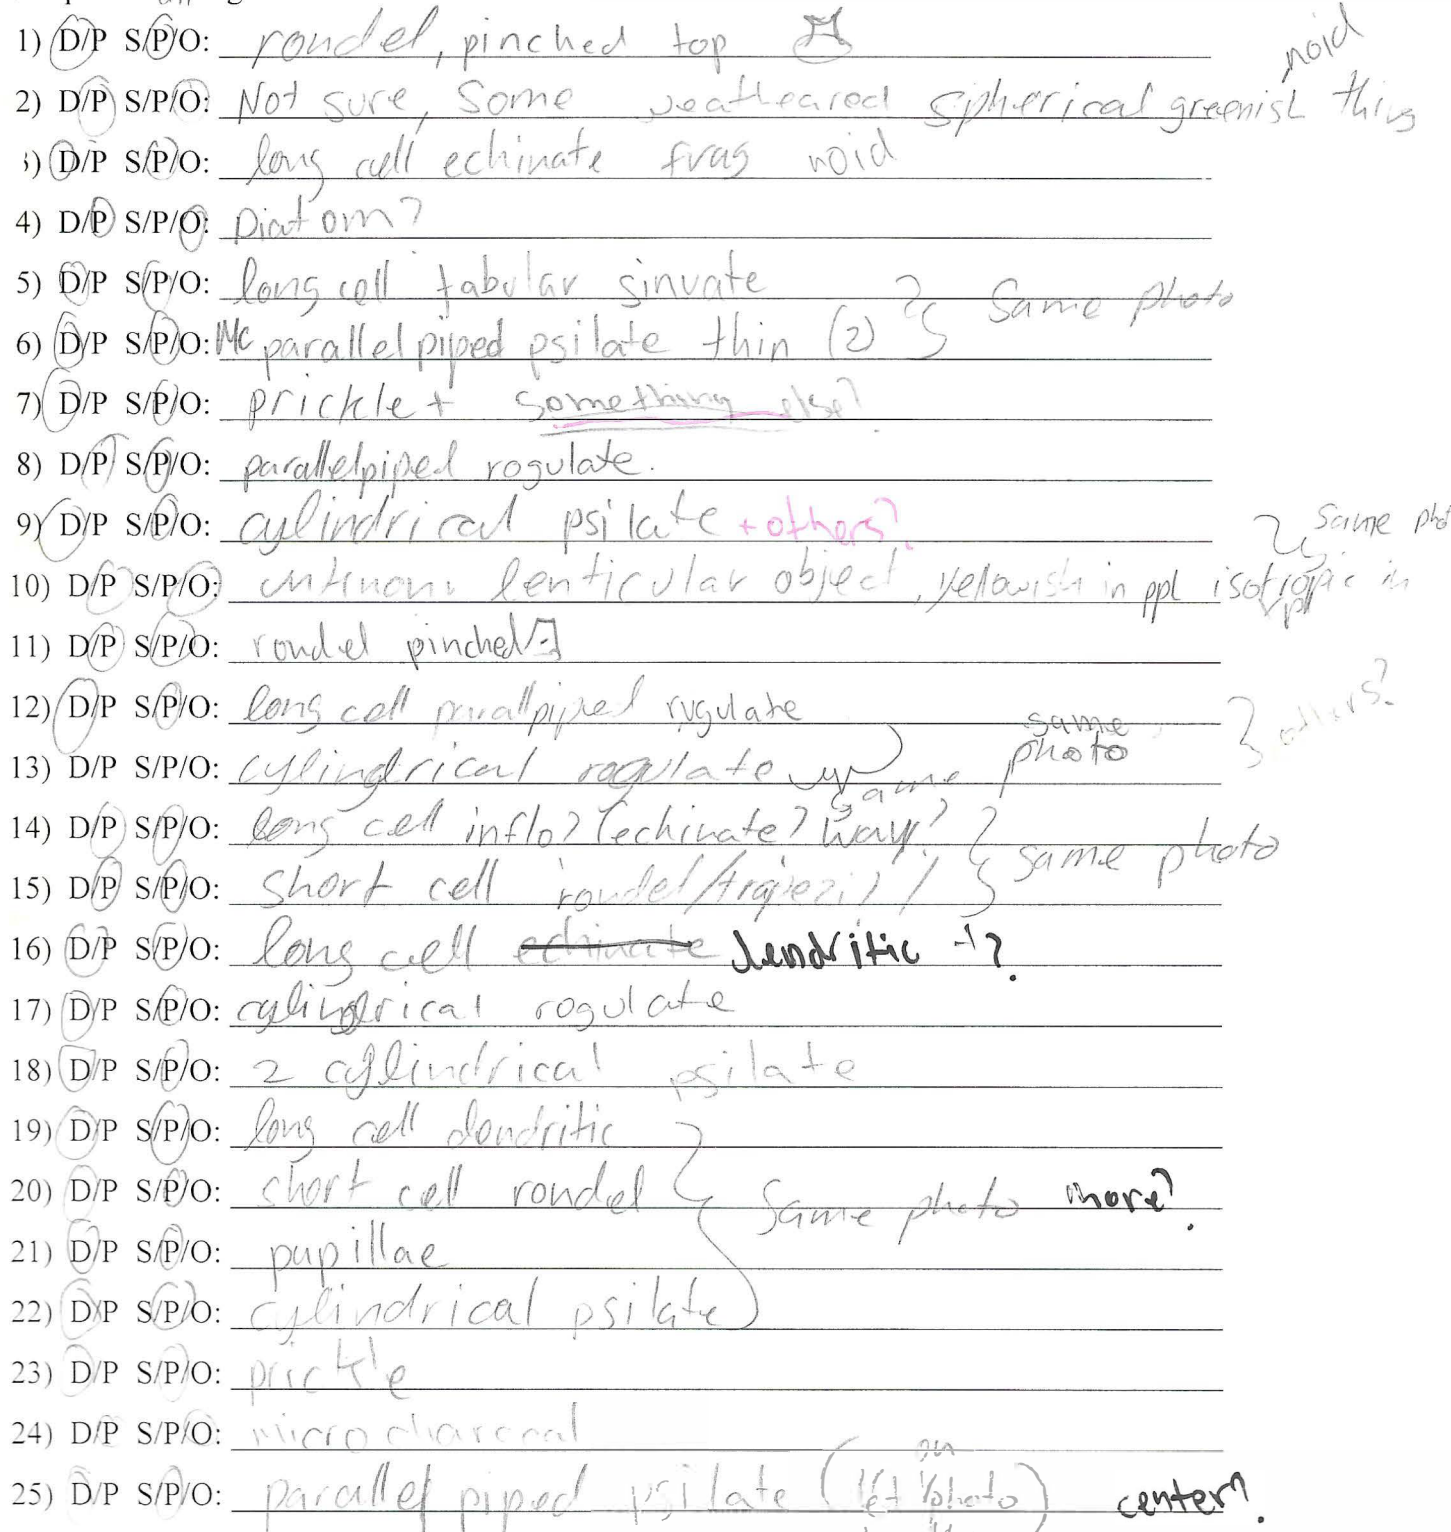 1) D/P S/P/O: rondel, pinched top
noid
2) D/P S/P/O: Not sure, Some weatheared spherical greenish thing
3) D/P S/P/O: long cell echinate frag noid
4) D/P S/P/O: Diatom?
5) D/P S/P/O: long cell tabular sinuate
Same photo
6) D/P S/P/O: Mc parallelpiped psilate thin (2)
7) D/P S/P/O: prickle + something else?
8) D/P S/P/O: parallelpiped rogulate.
9) D/P S/P/O: cylindrical psilate + others?
Same phot
10) D/P S/P/O: lenticular object, yellowish in ppl isotropic in xpl
11) D/P S/P/O: rondel pinched
12) D/P S/P/O: long cell parallpiped rugulate
others?
same photo
13) D/P S/P/O: cylindrical rogulate
same
14) D/P S/P/O: long cell inflo? (echinate? wavy?
same photo
15) D/P S/P/O: short cell rondel/trapezi
16) D/P S/P/O: long cell echinate dendritic +?
17) D/P S/P/O: cylindrical rogulate
18) D/P S/P/O: 2 cylindrical psilate
19) D/P S/P/O: long cell dendritic
20) D/P S/P/O: short cell rondel
Same photo more?
21) D/P S/P/O: pupillae
22) D/P S/P/O: cylindrical psilate
23) D/P S/P/O: prickle
24) D/P S/P/O: microcharcoal
on
25) D/P S/P/O: parallelpiped psilate (left photo) center?